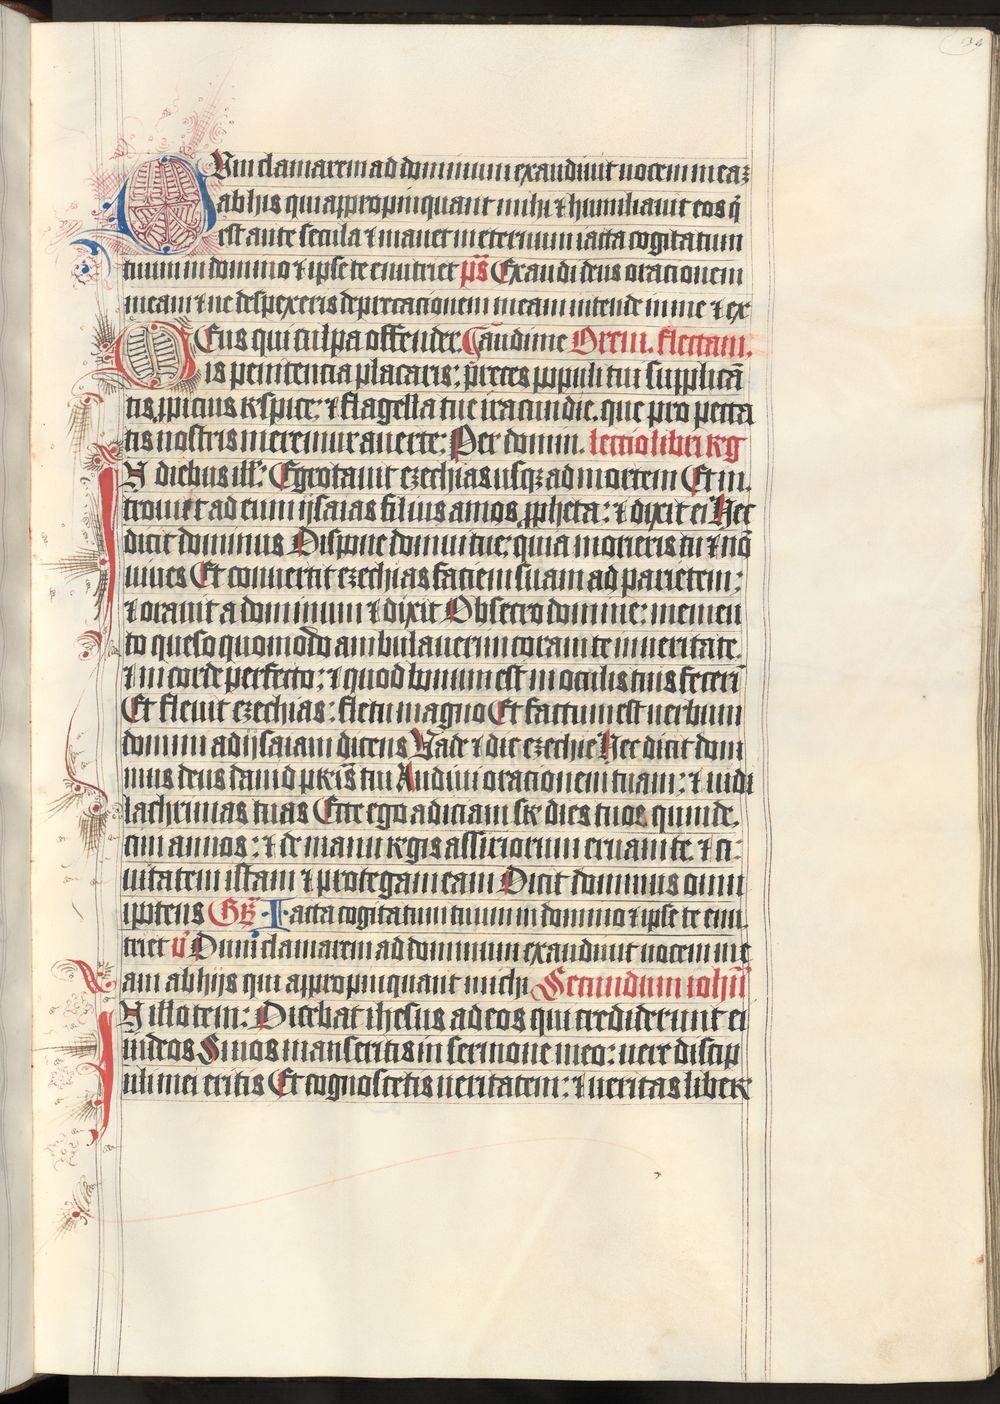 Dum clamarem ad dominum exaudiuit uocem meaꝫ
ab his qui appropinquant mihi ⁊ humiliauit eos q̄
est ante secula ⁊ manet in eternum iacta cogitatum
tuum in domino ⁊ ipse te enutriet p̄s Exaudi deus orationem
meam ⁊ ne despexeris deprecationem meam intende in me ⁊ ex
Deus qui culpa offender. Gaudi me Orem. flectam.
is penitencia placaris: p̄ces ppuli tui supplicā
tis ꝓpicius respice: ⁊ flagella tue iracundie. que pro pecca
tis nostris meremur auerte: Per domin. lectio libri reg
In diebus ill: Egrotauit ezechias usqꝫ ad mortem Et in.
trouit ad eum ysaias filius amos ꝓpheta: ⁊ dixit ei Hec
dicit dominus Dispone domui tue: quia morieris tu ⁊ nō
uiues Et conuertit ezechias faciem suam ad parietem:
⁊ orauit a dominum ⁊ dixit Obsecro domine: memen
to queso quomodo ambulauerim coram te in ueritate.
⁊ in corde perfecto: ⁊ quod bonum est in oculis tuis fecerī
Et fleuit ezechias: fletu magno Et factum est uerbum
domini ad ysaiam dicens Uade ⁊ dic ezechie Hec dicit dom
inus deus dauid pr̄is tui Audiui orationem tuam: ⁊ uidi
lachrimas tuas Ecce ego adiciam sr̄ dies tuos quinde.
cim annos: ⁊ de manu regis assiriorum eruam te. ⁊ ci:
uitatem istam ⁊ protegam eam Dicit dominus omn
ipotens Gr̄ Iacta cogitatum tuum in domino ⁊ ipse te enu
triet ℣ Dum clamarem ad dominum exaudiuit uocem me
am ab hijs qui appropinquant michi Secundum iohn̄
In illo tem: Dicebat ihesus ad eos qui crediderunt ei
iudeos Si uos manseritis in sermone meo: uere discip
uli mei eritis Et cognoscetis ueritatem: ⁊ ueritas liber